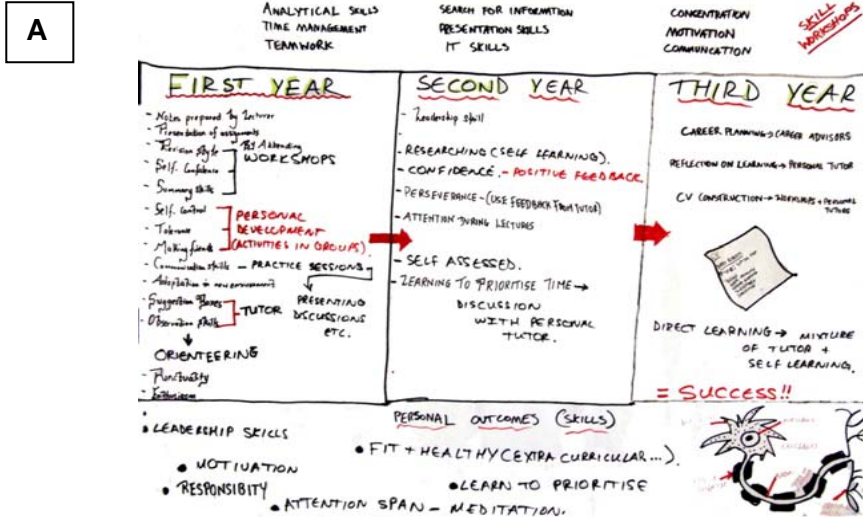 A
ANALYTICAL SKILLS
TIME MANAGEMENT
TEAMWORK
SEARCH FOR INFORMATION
PRESENTATION SKILLS
IT SKILLS
CONCENTRATION
MOTIVATION
COMMUNICATION
SKILL
WORKSHOPS
FIRST YEAR
- Notes prepared by lecturer
- Presentation of assignments
- Revision style
- Self. Confidence
- Summary skills
By Attending
WORKSHOPS
- Self. Control
- Tolerance
- Making friends
PERSONAL
DEVELOPMENT
(ACTIVITIES IN GROUPS).
- Communication skills - PRACTICE SESSIONS
- Adaptation in new environment
PRESENTING
DISCUSSIONS
ETC.
- Suggestion Boxes
- Observation skills
TUTOR
ORIENTEERING
- Punctuality
- Enthusiasm
SECOND YEAR
- Leadership skill
- RESEARCHING (SELF LEARNING).
- CONFIDENCE. - POSITIVE FEEDBACK
- PERSEVERANCE - (USE FEEDBACK FROM TUTOR)
- ATTENTION DURING LECTURES
- SELF ASSESSED.
- LEARNING TO PRIORITISE TIME →
DISCUSSION
WITH PERSONAL
TUTOR.
THIRD YEAR
CAREER PLANNING → CAREER ADVISORS
REFLECTION ON LEARNING → PERSONAL TUTOR
CV CONSTRUCTION → WORKSHOPS + PERSONAL
TUTORS
DIRECT LEARNING → MIXTURE
OF TUTOR +
SELF LEARNING.
= SUCCESS!!
PERSONAL OUTCOMES (SKILLS)
• LEADERSHIP SKILLS
• MOTIVATION
• RESPONSIBITY
• FIT + HEALTHY (EXTRA CURRICULAR...).
• LEARN TO PRIORITISE
• ATTENTION SPAN - MEDITATION.